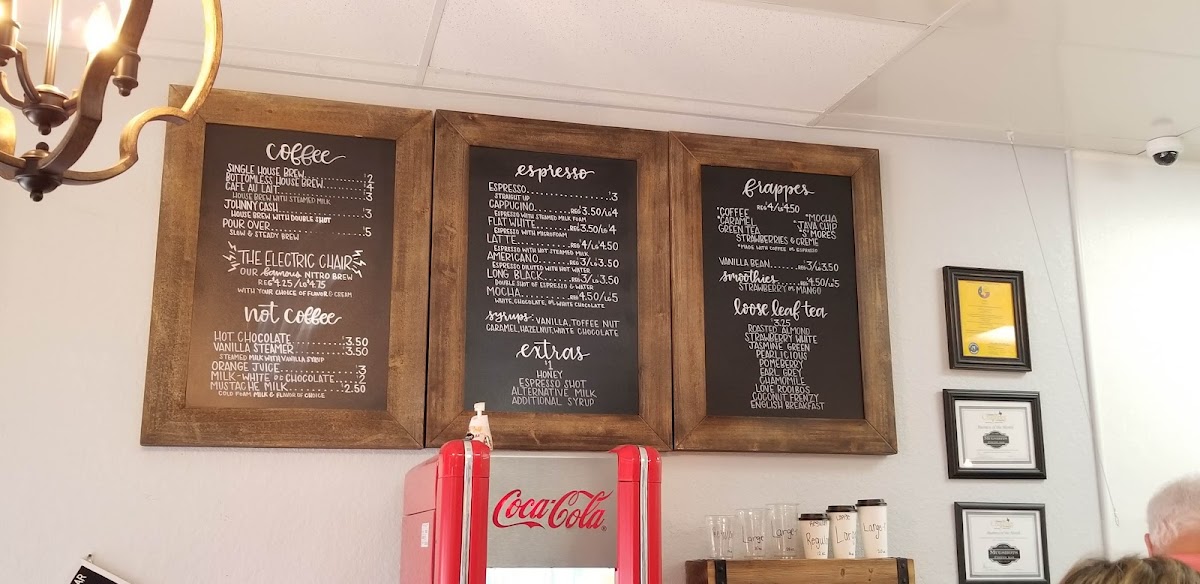 coffee
SINGLE HOUSE BREW $2
BOTTOMLESS HOUSE BREW $4
CAFE AU LAIT $3
HOUSE BREW WITH STEAMED MILK
JOHNNY CASH $3
HOUSE BREW WITH DOUBLE SHOT
POUR OVER $5
SLOW & STEADY BREW
THE ELECTRIC CHAIR
OUR famous NITRO BREW
REG $4.25 / LG $4.75
WITH YOUR CHOICE OF FLAVOR & CREAM
not coffee
HOT CHOCOLATE $3.50
VANILLA STEAMER $3.50
STEAMED MILK WITH VANILLA SYRUP
ORANGE JUICE $3
MILK-WHITE OR CHOCOLATE $2
MUSTACHE MILK $2.50
COLD FOAM MILK & FLAVOR OF CHOICE
espresso
ESPRESSO $3
STRAIGHT UP
CAPPUCINO REG $3.50/LG $4
ESPRESSO WITH STEAMED MILK FOAM
FLAT WHITE REG $3.50/LG $4
ESPRESSO WITH MICROFOAM
LATTE REG $4/LG $4.50
ESPRESSO WITH HOT STEAMED MILK
AMERICANO REG $3/LG $3.50
ESPRESSO DILUTED WITH HOT WATER
LONG BLACK REG $3/LG $3.50
DOUBLE SHOT OF ESPRESSO & WATER
MOCHA REG $4.50/LG $5
WHITE, CHOCOLATE, OR WHITE CHOCOLATE
syrups: VANILLA, TOFFEE NUT
CARAMEL, HAZELNUT, WHITE CHOCOLATE
extras
$1
HONEY
ESPRESSO SHOT
ALTERNATIVE MILK
ADDITIONAL SYRUP
frappes
REG $4/LG $4.50
*COFFEE *MOCHA
*CARAMEL *JAVA CHIP
GREEN TEA *S'MORES
STRAWBERRIES & CREME
*MADE WITH COFFEE OR ESPRESSO
VANILLA BEAN REG $3/LG $3.50
smoothies REG $4.50/LG $5
STRAWBERRY OR MANGO
loose leaf tea
$3.25
ROASTED ALMOND
STRAWBERRY WHITE
JASMINE GREEN
PEARLICIOUS
POMEBERRY
EARL GREY
CHAMOMILE
LOVE ROOIBOS
COCONUT FRENZY
ENGLISH BREAKFAST
Coca-Cola
Large
Regular
Large
Large